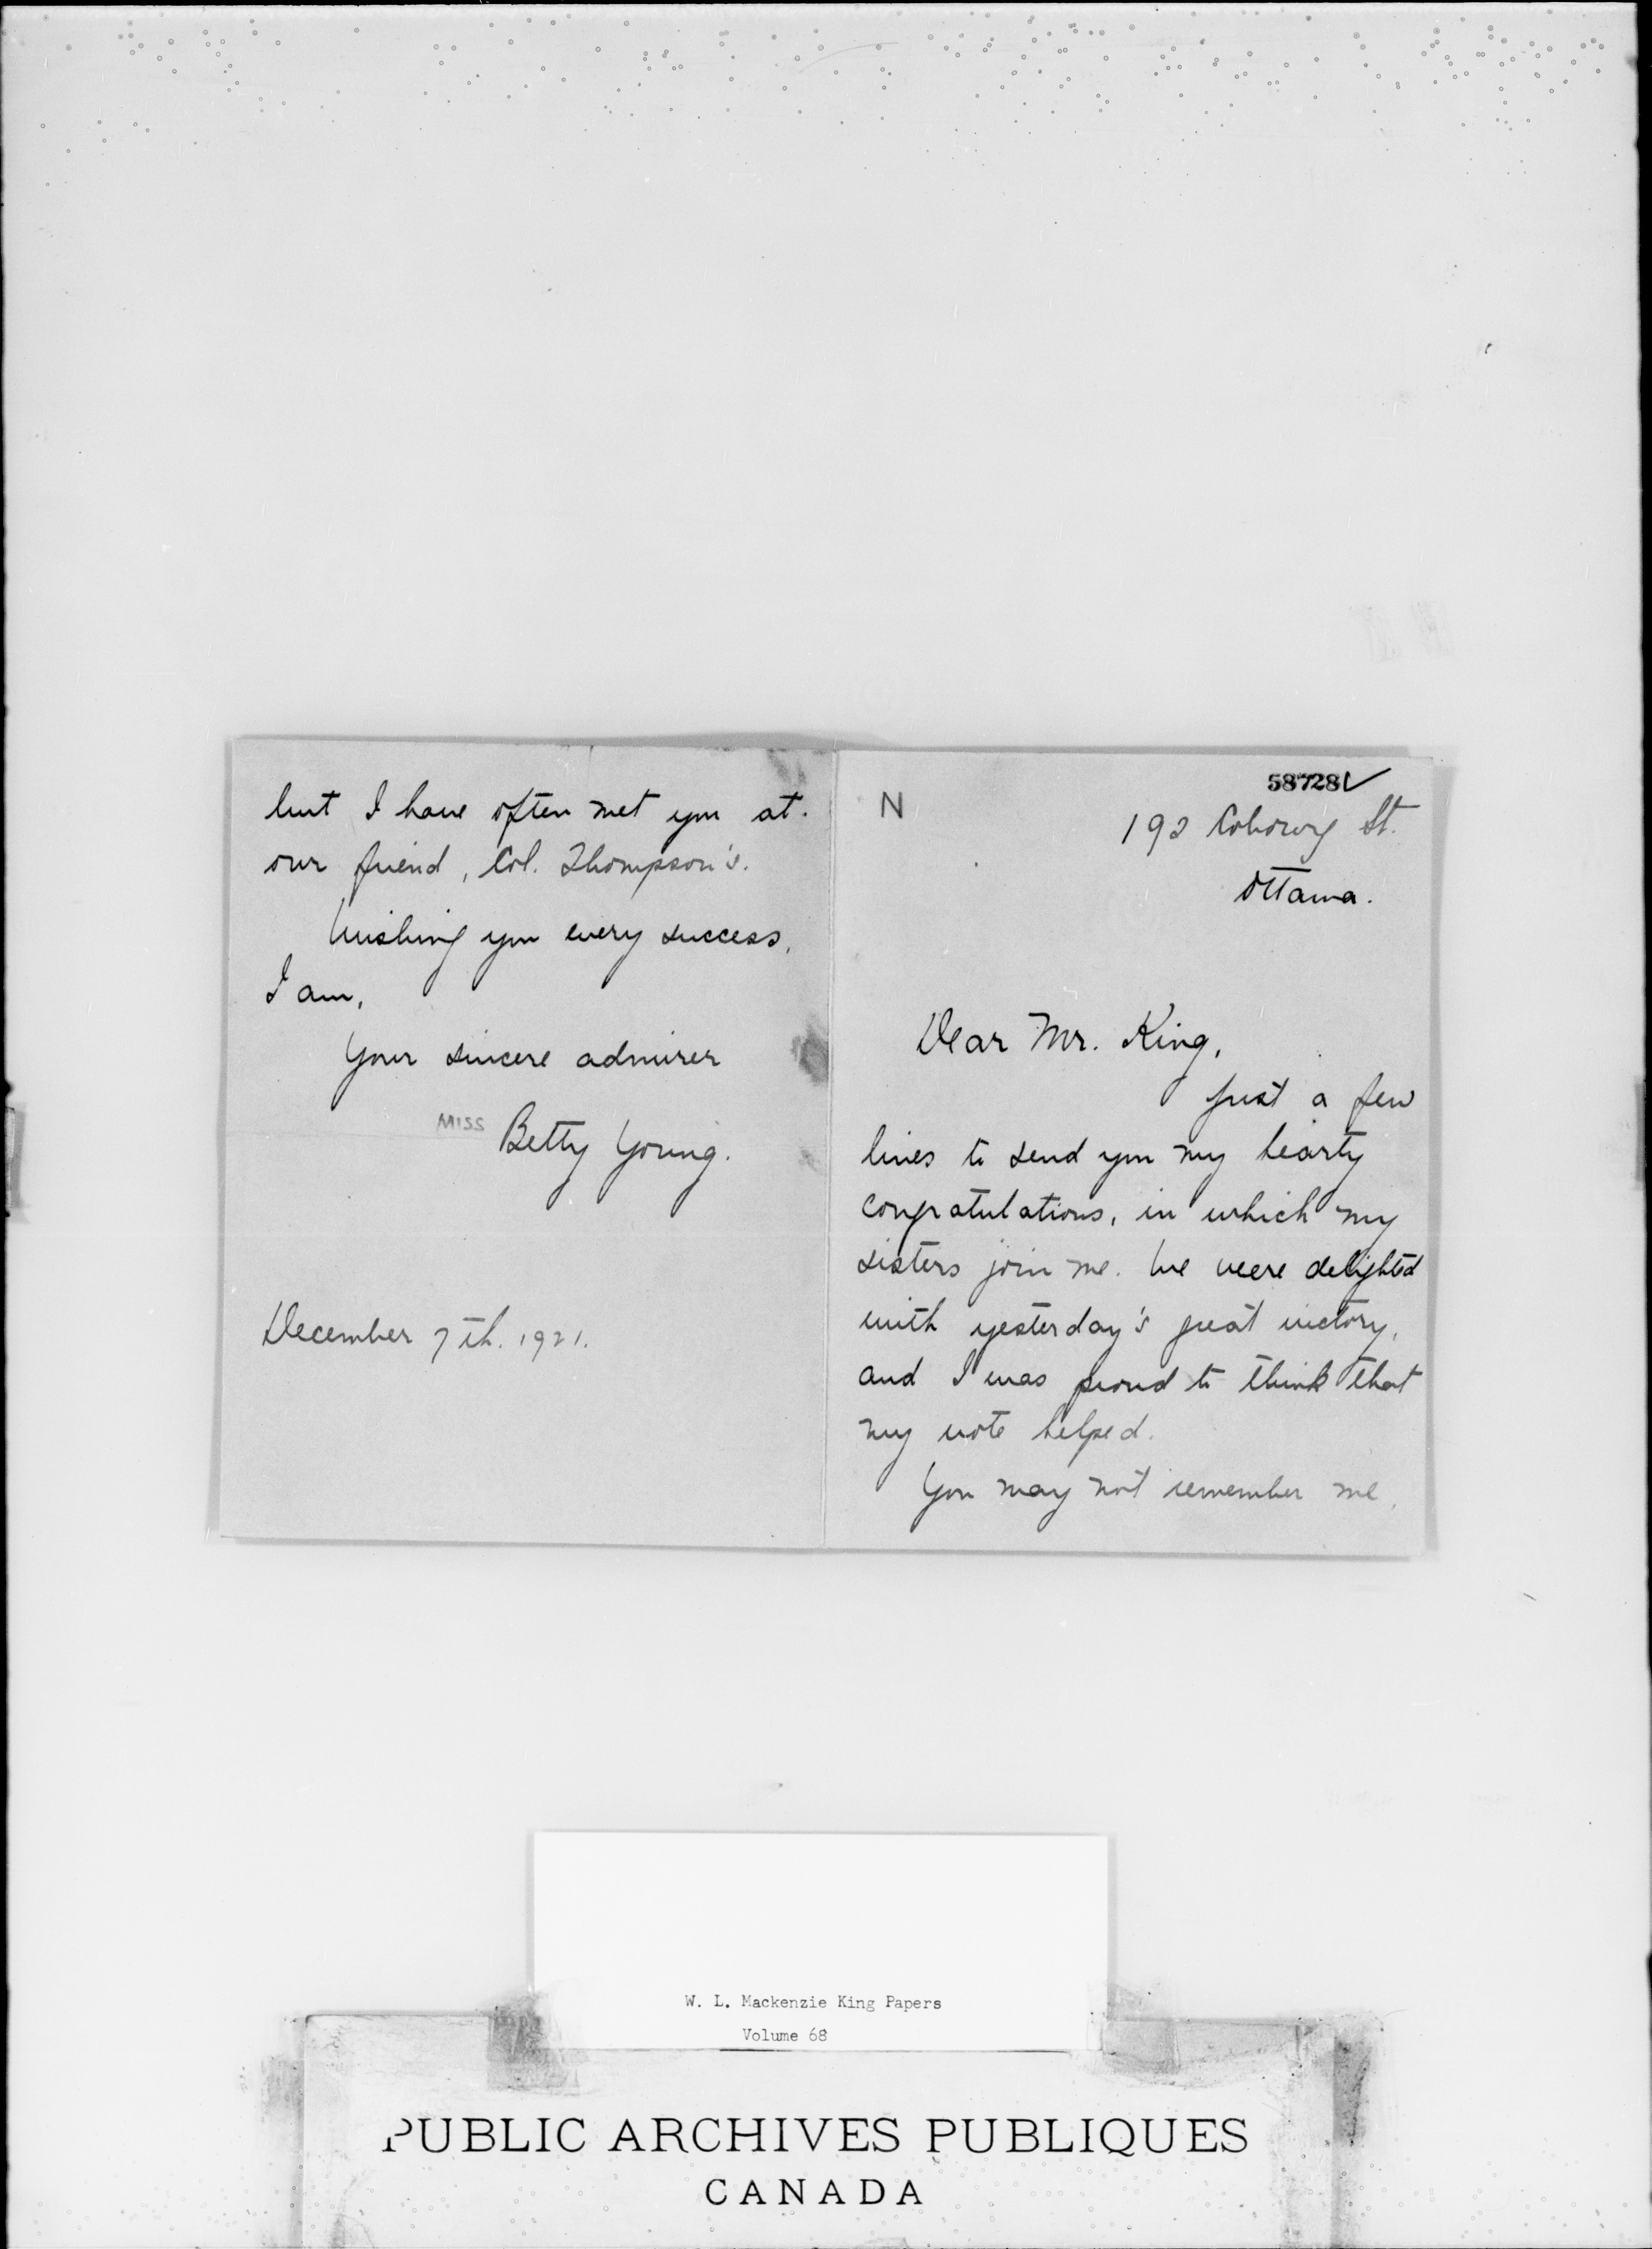 58728 ✓
N
192 Cobourg St.
Ottawa.
Dear Mr. King,
Just a few
lines to send you my hearty
congratulations, in which my
sisters join me. We were delighted
with yesterday's great victory,
and I was proud to think that
my vote helped.
You may not remember me,
but I have often met you at
our friend, Col. Thompson's.
Wishing you every success,
I am,
Your sincere admirer
MISS Betty Young.
December 7th. 1921.
W. L. Mackenzie King Papers
Volume 68
PUBLIC ARCHIVES PUBLIQUES
CANADA